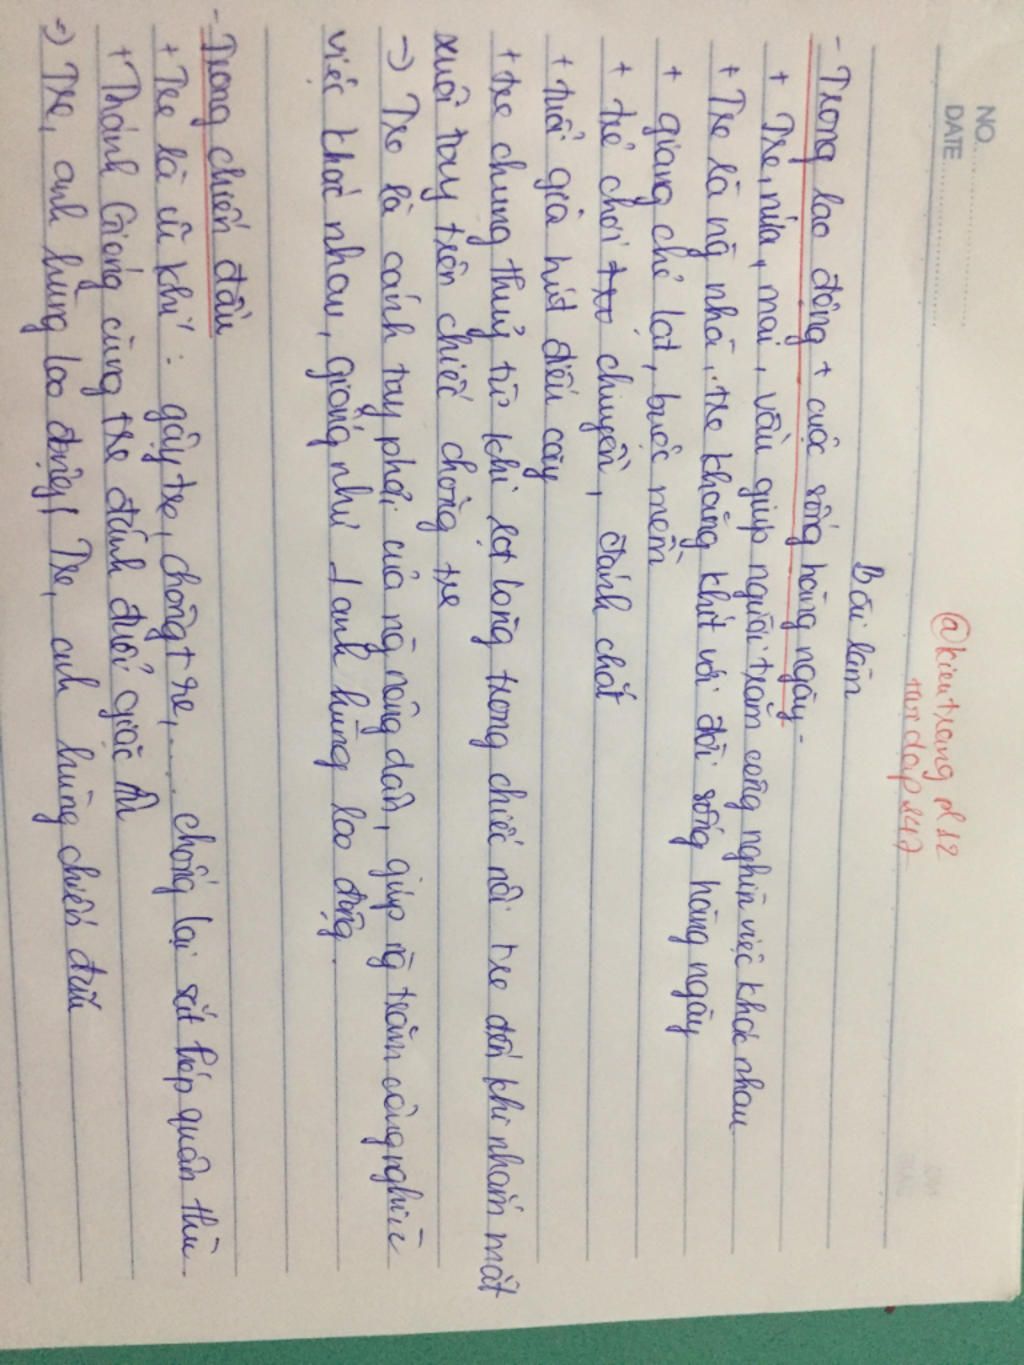 NO.
DATE
@kieutrang pl 12
Bài làm
- Trong lao động + cuộc sống hàng ngày.
+ Tre, nứa, mai, vầu giúp người trăm công nghìn việc khác nhau
+ Tre là ng nhà, tre khăng khít với đời sống hàng ngày
+ giang chẻ lạt, buộc mềm
+ trẻ chơi chuyền, đánh chắt
+ tuổi già hút điếu cày
+ tre chung thuỷ từ khi lọt lòng trong chiếc nôi tre đến khi nhắm mắt
xuôi tay trên chiếc chõng tre
=) Tre là cánh tay phải của ng nông dân, giúp ng trăm công nghìn
việc khác nhau, giống như 1 anh hùng lao động.
- Trong chiến đấu
+ Tre là vũ khí : gậy tre, chông tre, .... chống lại sắt thép quân thù
+ Thánh Gióng cùng tre đánh đuổi giặc Ân
=) Tre, anh hùng lao động! Tre, anh hùng chiến đấu